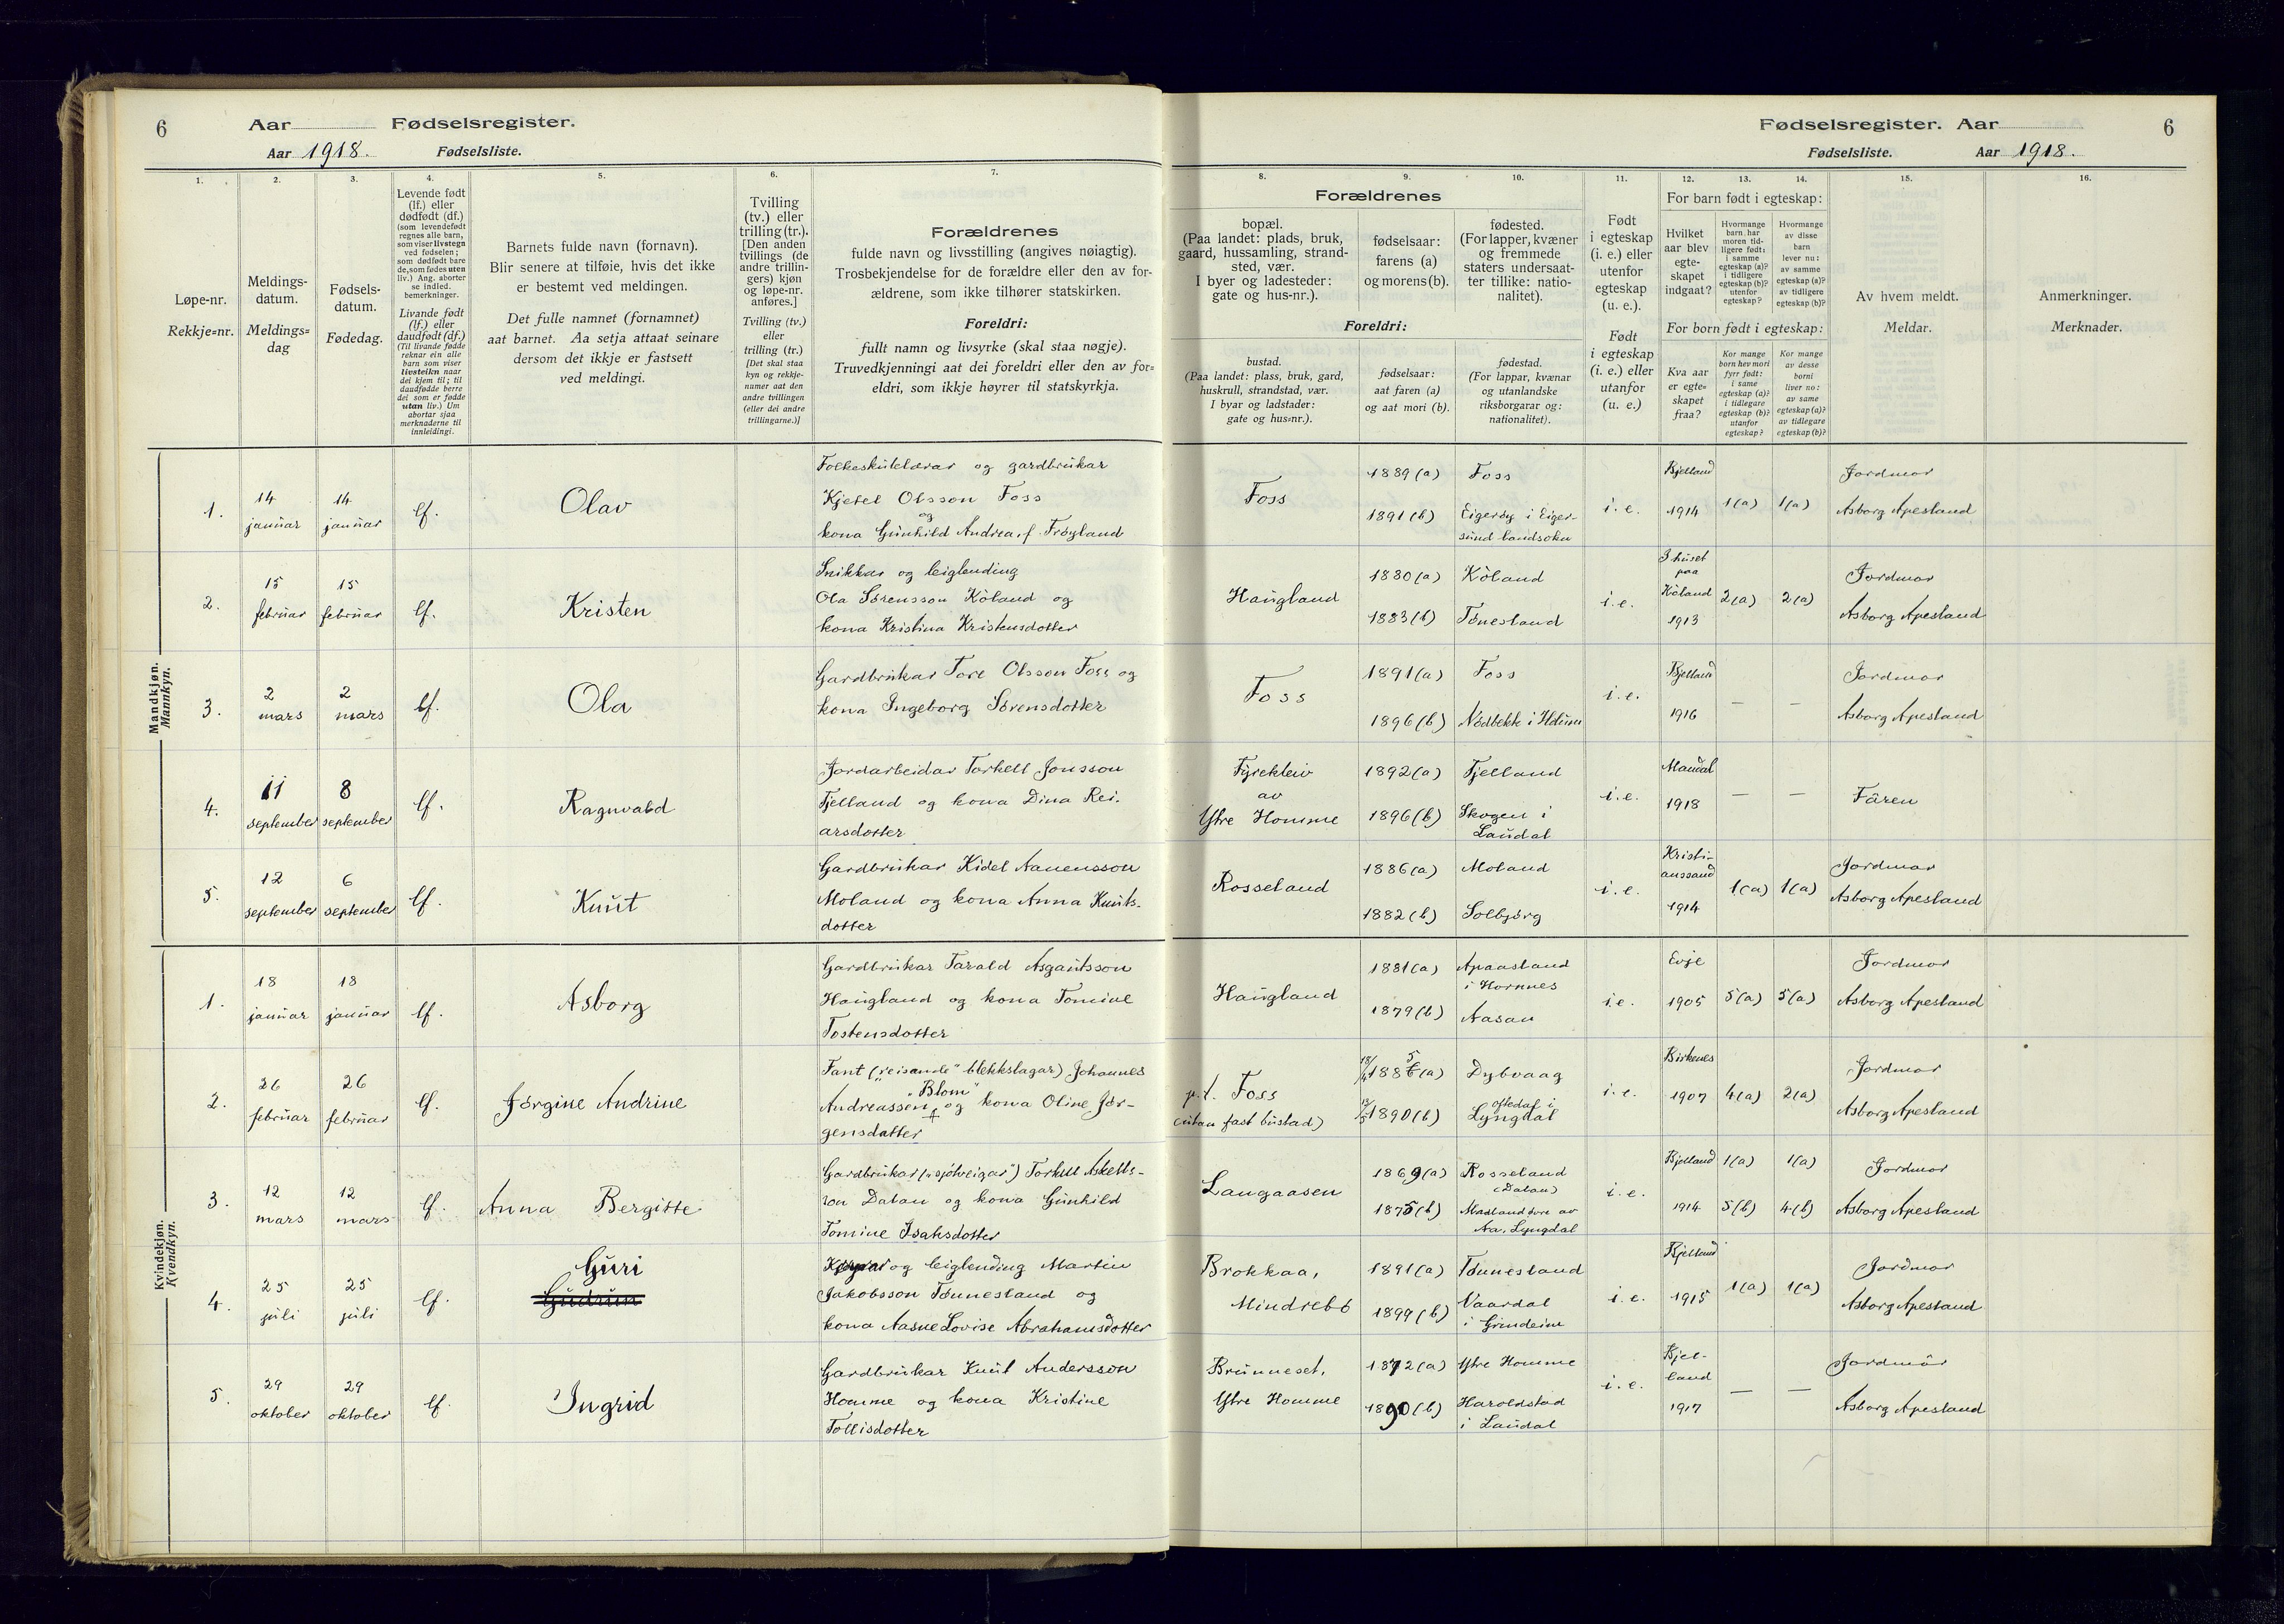 6 Aar Fødselsregister.
Aar 1918. Fødselsliste.
Fødselsregister. Aar 6
Fødselsliste. Aar 1918.
1.
Løpe-nr.
Rekkje-nr.
2.
Meldings-
datum.
Meldings-
dag
3.
Fødsels-
datum.
Fødedag.
4.
Levende født
(lf.) eller
dødfødt (df.)
(som levendefødt
regnes alle barn,
som viser livstegn
ved fødselen;
som dødfødt bare
de, som fødes uten
liv.) Ang. aborter
se indled.
bemerkninger.
Livande født
(lf.) eller
daudfødt (df.)
(Til livande fødde
reknar ein alle
barn som viser
livsteikn naar
dei kjem til; til
daudfødde berre
dei som er fødde
utan liv.) Um
abortar sjaa
merknaderne til
innleidingi.
5.
Barnets fulde navn (fornavn).
Blir senere at tilføie, hvis det ikke
er bestemt ved meldingen.
Det fulle namnet (fornamnet)
aat barnet. Aa setja attaat seinare
dersom det ikkje er fastsett
ved meldingi.
6.
Tvilling
(tv.) eller
trilling (tr.).
[Den anden
tvillings (de
andre trillin-
gers) kjøn
og løpe-nr.
anføres.]
Tvilling (tv.)
eller
trilling (tr.)
[Det skal staa
kyn og rekkje-
numer aat den
andre tvillingen
(eller dei andre
trillingarne.)]
7.
Forældrenes
fulde navn og livsstilling (angives nøiagtig).
Trosbekjendelse for de forældre eller den av for-
ældrene, som ikke tilhører statskirken.
Foreldri:
fullt namn og livsyrke (skal staa nøgje).
Truvedkjenningi aat dei foreldri eller den av for-
eldri, som ikkje høyrer til statskyrkja.
Forældrenes
8.
bopæl.
(Paa landet: plads, bruk,
gaard, hussamling, strand-
sted, vær.
I byer og ladesteder:
gate og hus-nr.).
9.
fødselsaar:
farens (a)
og morens (b).
10.
fødested.
(For lapper, kvæner
og fremmede
staters undersaat-
ter tillike: natio-
nalitet).
Foreldri:
bustad.
(Paa landet: plass, bruk, gard,
huskrull, strandstad, vær.
I byar og ladstader:
gate og hus-nr.).
fødselsaar:
aat faren (a)
og aat mori (b).
fødestad.
(For lappar, kvænar
og utanlandske
riksborgarar og:
nationalitet).
11.
Født
i egteskap
(i. e.) eller
utenfor
egteskap
(u. e.).
Født
i egteskap
(i. e.) eller
utanfor
(u. e.)
12. 13. 14.
For barn født i egteskap:
Hvilket
aar blev
egte-
skapet
indgaat?
Hvormange
barn har
moren tid-
ligere født:
i samme
egteskap (a)?
i tidligere
egteskap (b)?
utenfor
egteskap?
Hvormange
av disse
barn
lever nu:
av samme
egteskap (a)?
av tidligere
egteskap (b)?
For born født i egteskap:
Kva aar
er egte-
skapet
fraa?
Kor mange
born hev mori
fyrr født:
i same
egteskap (a)?
i tidlegare
egteskap (b)?
utanfor
egteskap?
Kor mange
av desse
borni
liver no:
av same
egteskap (a)?
av tidlegare
egteskap (b)?
15.
Av hvem meldt.
Meldar.
16.
Anmerkninger.
Merknader.
Mandkjøn.
Mannkyn.
1. 14 januar 14 januar lf. Olav
Folkeskulelærar og gardbrukar
Kjetel Olsson Foss
og
kona Gunhild Andrea, f. Frøyland
Foss
1889 (a) Foss
1891 (b) Eigerøy i Eiger-
sund landsokn
i. e. Bjelland 1914 1(a) 1(a)
Jordmor
Asborg Apesland
2. 15 februar 15 februar lf. Kristen
Snikkar og leiglending
Ola Sørensson Kòland og
kona Kristina Kristensdotter
Haugland
1880 (a) Kòland
1883 (b) Tønesland
i. e. I huset paa Kòland 1913 2(a) 2(a)
Jordmor
Asborg Apesland
3. 2 mars 2 mars lf. Ola
Gardbrukar Tore Olsson Foss og
kona Ingeborg Sørensdotter
Foss
1891 (a) Foss
1896 (b) Nødbekk i
i. e. Bjelland 1916 — —
Jordmor
Asborg Apesland
4. 11 september 8 september lf. Ragnvald
Jordarbeidar Torkell Jonsson
Fjelland og kona Dina Rei-
arsdotter
Fyrekleiv
av
Ytre Homme
1892 (a) Fjelland
1896 (b) Skogen i
Laudal
i. e. Mandal 1918 — —
Fâren
5. 12 september 6 september lf. Knut
Gardbrukar Kidel Aanensson
Moland og kona Anna Knuts-
dotter
Rosseland
1886 (a) Moland
1882 (b) Solbjørg
i. e. Kristi-
anssand 1914 1(a) 1(a)
Jordmor
Asborg Apesland
Kvindekjøn.
Kvendkyn.
1. 18 januar 18 januar lf. Asborg
Gardbrukar Tarald Asgautsson
Haugland og kona Tomine
Tostensdotter
Haugland
1881 (a) Apaasland
i Hornnes
1879 (b) Aasan
i. e. Evje 1905 5(a) 5(a)
Jordmor
Asborg Apesland
2. 26 februar 26 februar lf. Jørgine Andrine
Fant („reisande" blekkslagar) Johannes
„Blom"
Andreassen + og kona Oline Jør-
gensdatter
p. t. Foss
(utan fast bustad)
1885 (a) Dybvaag
1890 (b) oftedal i
Lyngdal
i. e. Birkenes 1907 4(a) 2(a)
Jordmor
Asborg Apesland
3. 12 mars 12 mars lf. Anna Bergitte
Gardbrukar („sjølveigar") Torkell Askells-
son Datan og kona Gunhild
Tomine Isaksdotter
Langaasen
1869 (a) Rosseland
(Datan)
1875 (b) Madland
Aa, Lyngdal
i. e. Bjelland 1914 1(a) 1(a)
5(b) 4(b)
Jordmor
Asborg Apesland
4. 25 juli 25 juli lf. Guri
Gudrun
og leiglending Martin
Jakobsson Tønnesland og
kona Aasne Lovise Abrahamsdotter
Brokkaa,
Mindrebø
1891 (a) Tønnesland
1899 (b) Vaardal
i Grindeim
i. e. Bjelland 1915 1(a) 1(a)
Jordmor
Asborg Apesland
5. 29 oktober 29 oktober lf. Ingrid
Gardbrukar Knut Andersson
Homme og kona Kristine
Tollisdotter
Brunneset,
Ytre Homme
1872 (a) Ytre Homme
1890 (b) Haroldstad
i Laudal
i. e. Bjel-
land 1917 — —
Jordmor
Asborg Apesland